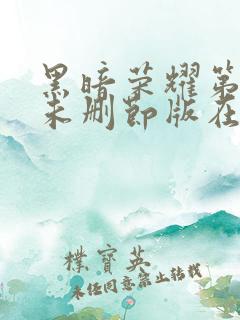 黑暗荣耀第
未删节版在
朴宝英
未经同意禁止转载